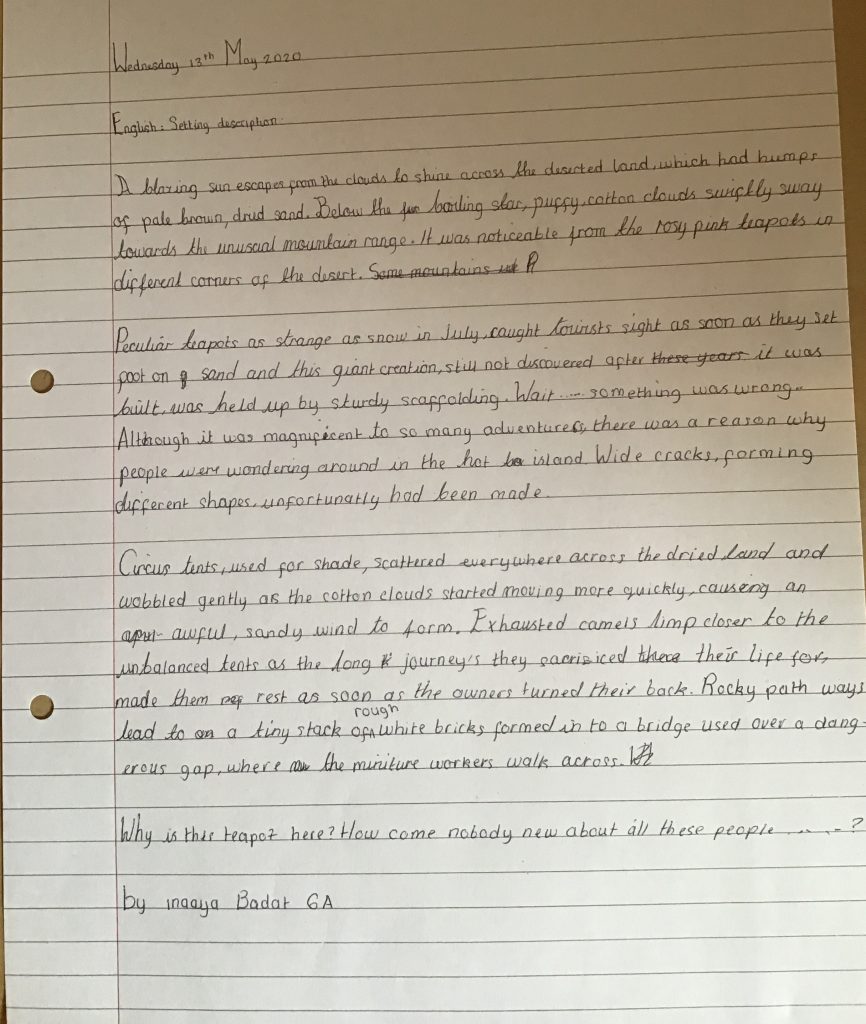 Wednesday 13th May 2020
English: Setting description.
A blazing sun escapes from the clouds to shine across the deserted land, which had humps
of pale brown, dried sand. Below the boiling star, puffy, cotton clouds swiftly sway
towards the unusual mountain range. It was noticeable from the rosy pink teapots in
different corners of the desert. Some mountains
Peculiar teapots as strange as snow in July, caught tourists sight as soon as they set
foot on sand and this giant creation, still not discovered after these years it was
built, was held up by sturdy scaffolding. Wait.... something was wrong..
Although it was magnificent to so many adventurers, there was a reason why
people were wondering around in the hot island. Wide cracks, forming
different shapes, unfortunatly had been made.
Circus tents, used for shade, scattered everywhere across the dried land and
wobbled gently as the cotton clouds started moving more quickly, causing an
awful, sandy wind to form. Exhausted camels limp closer to the
unbalanced tents as the long journey's they sacrisiced their life for,
made them rest as soon as the owners turned their back. Rocky path ways
lead to a tiny stack of rough white bricks formed in to a bridge used over a dang-
erous gap, where the miniture workers walk across.
Why is this teapot here? How come nobody new about all these people ......?
by inaaya Badat 6A